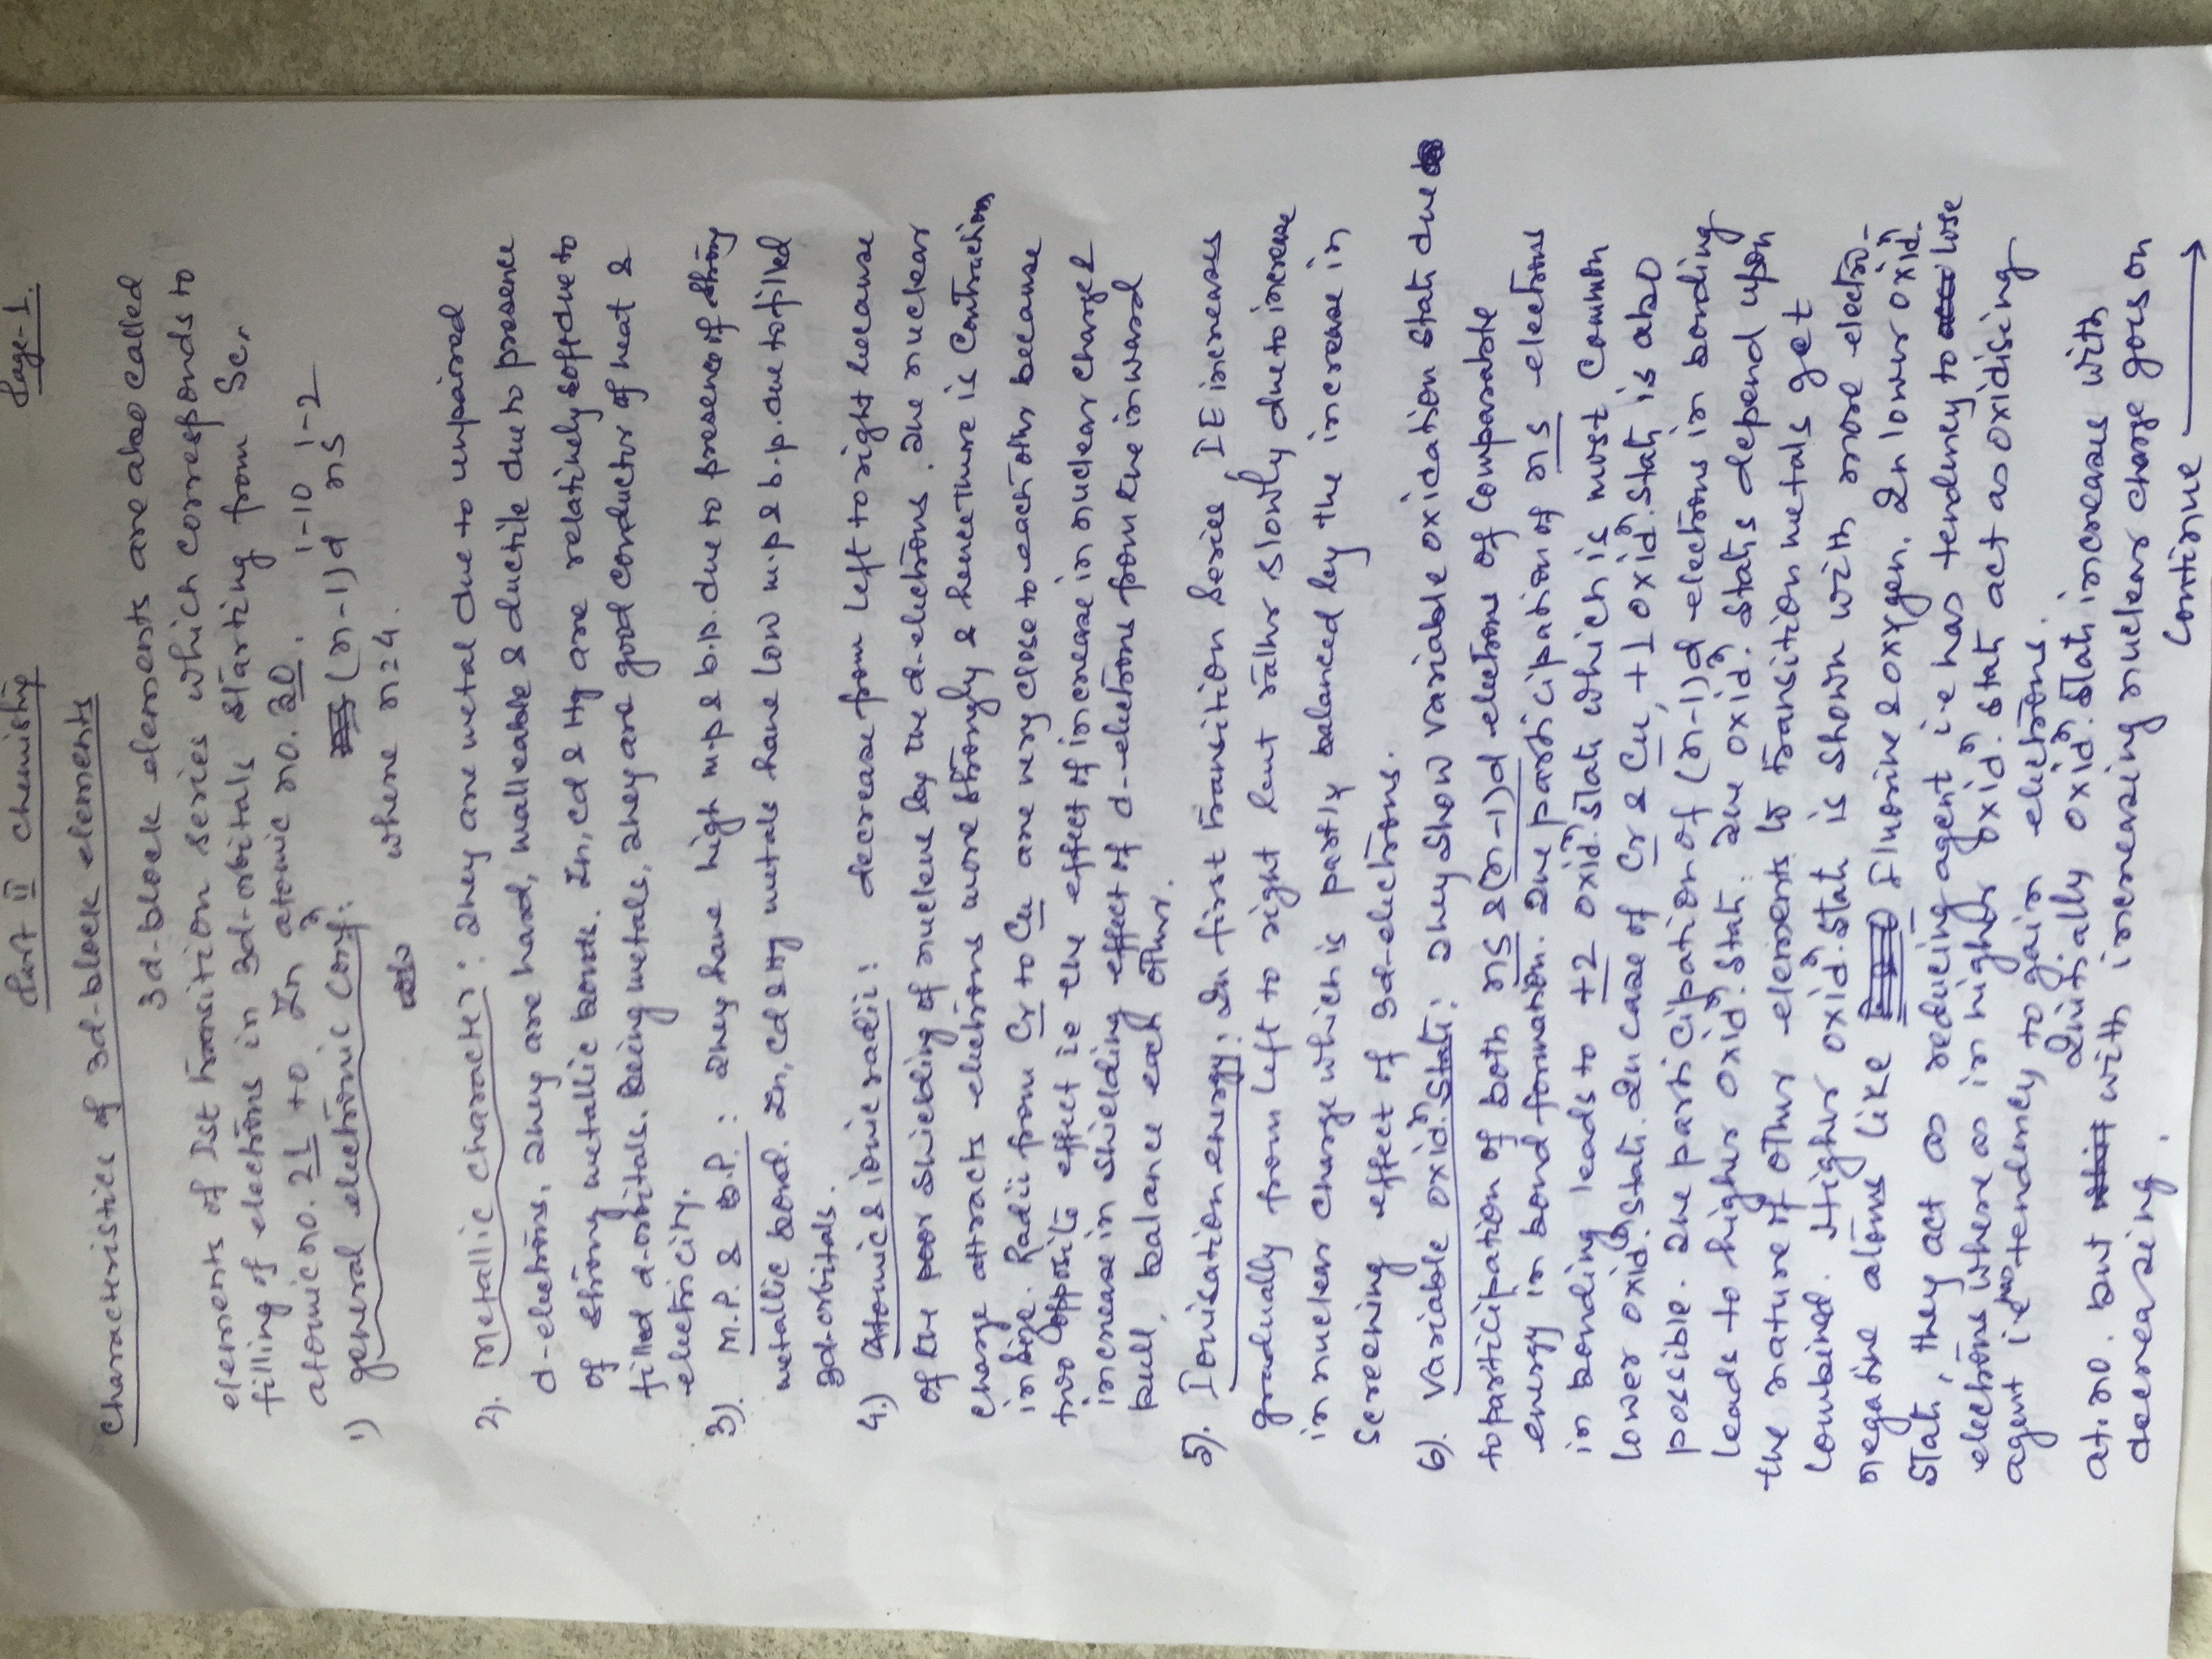 Part II Chemistry Page-1.
Characteristics of 3d-block elements
3d-block elements are also called
elements of Ist transition series which corresponds to
filling of electrons in 3d-orbitals starting from Sc,
atomic no. 21 to Zn atomic no. 30.
1) general electronic confn: (n-1)d 1-10 ns 1-2
where n=4.
2). Metallic character: They are metal due to unpaired
d-electrons, They are hard, malleable & ductile due to presence
of strong metallic bonds. Zn, Cd & Hg are relatively soft due to
filled d-orbitals. Being metals, they are good conductor of heat &
electricity.
3). M.P. & B.P. : They have high m.p & b.p. due to presence of strong
metallic bond. Zn, Cd & Hg metals have low m.p & b.p. due to filled
3d-orbitals.
4.) Atomic & ionic radii: decrease from left to right because
of the poor shielding of nucleus by the d-electrons. The nuclear
charge attracts electrons more strongly & hence there is contraction
in size. Radii from Cr to Cu are very close to each other because
two opposite effect ie the effect of increase in nuclear charge &
increase in shielding effect of d-electrons from the inward
pull, balance each other.
5). Ionisation energy: In first transition series, IE increases
gradually from left to right but rather slowly due to increase
in nuclear charge which is partly balanced by the increase in
screening effect of 3d-electrons.
6). Variable oxidn. State: They show variable oxidation state due
to participation of both ns & (n-1)d electrons of comparable
energy in bond formation. The participation of ns electrons
in bonding leads to +2 oxidn. state which is most common
lower oxidn. state. In case of Cr & Cu, +1 oxidn. state is also
possible. The participation of (n-1)d electrons in bonding
leads to higher oxidn. state. The oxidn. states depend upon
the nature of other elements to transition metals get
combined. Higher oxidn. state is shown with more electro-
negative atoms like Fluorine & oxygen. In lower oxidn.
state, they act as reducing agent i.e has tendency to lose
electrons where as in higher oxidn. state act as oxidising
agent i.e has tendency to gain electrons.
Initially oxidn. state increases with
at. no. but with increasing nuclear charge goes on
decreasing.
Continue →